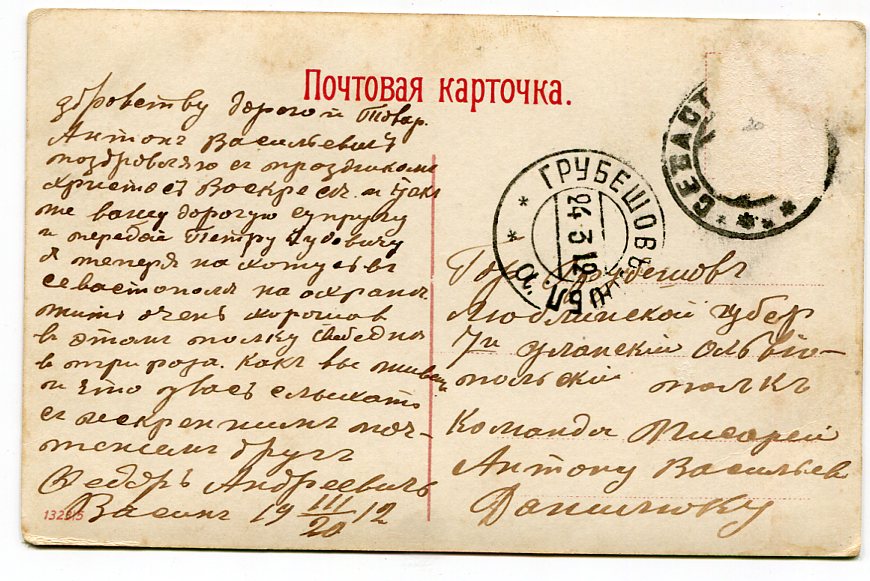 Почтовая карточка.
здровству дорогой Товар.
Антонъ Васильевичъ
поздровляю съ праздником
Христосъ Воскресъ. и так
же вашу дорогую супругу
и передай Петру
я теперя нахотусь въ
Севастополя на охране
жить очень хорошов
в этом полку свободна
в три роза. Какъ вы живеш
и што увас слыхать
съ искреннимъ поч-
тенiем другъ
Федоръ Андреевичъ
Васин 19 III/20 12
132915
СЕВАСТ
ГРУБЕШОВЪ ЛЮБЛ.
24 3 12
а
Гор. Грубешовъ
Люблинской губер
7й уланскiй ольвiо-
польскiй полкъ
Команда Писарей
Антону Васильев
Данилюку